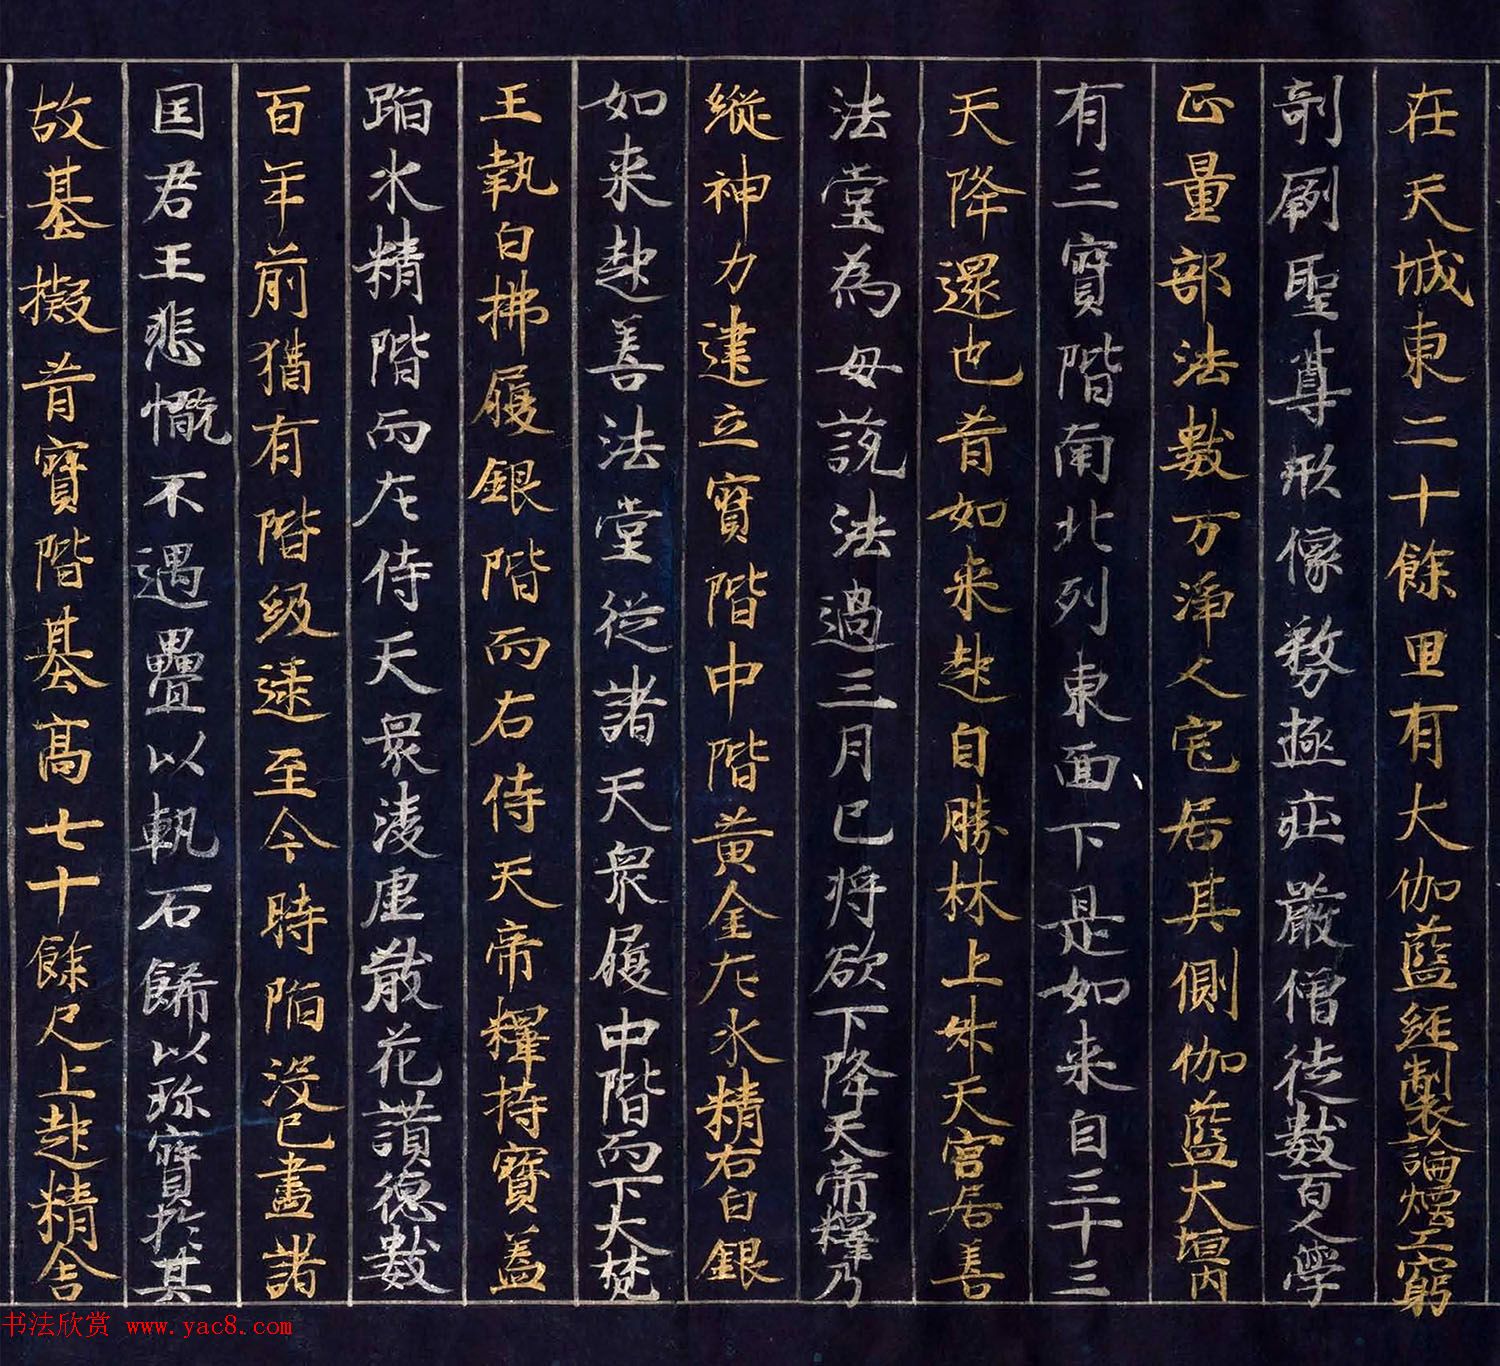 在天城東二十餘里有大伽藍經製論㷼工窮
剞劂聖尊形像務極庄嚴僧徒數百人學
正量部法數万淨人宅居其側伽藍大垣內
有三寶階南北列東面下是如来自三十三
天降還也昔如来赴自勝林上昇天宮居善
法堂為母説法過三月已将欲下降天帝釋乃
縱神力建立寶階中階黃金左水精右白銀
如来赴善法堂從諸天衆履中階而下大梵
王執白拂履銀階而右侍天帝釋持寶蓋
蹈水精階而左侍天衆凌虛散花讃德數
百年前猶有階級逮至今時陷沒已盡諸
国君王悲慨不遇疊以軌石餝以珎寶於其
故基擬昔寶階基高七十餘尺上赴精舍
书法欣赏 www.yac8.com